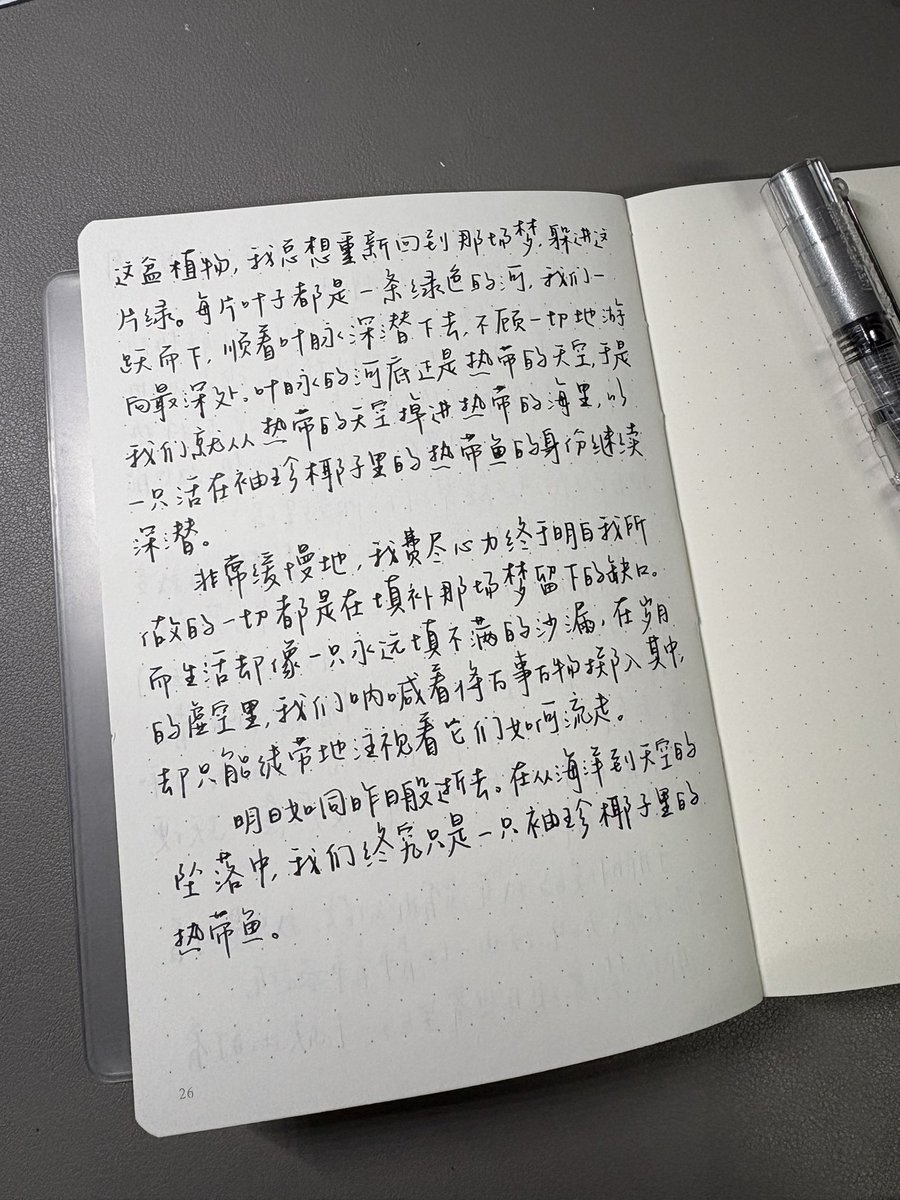 这盆植物,我总想重新回到那场梦,躲进这
片绿。每片叶子都是一条绿色的河,我们一
跃而下,顺着叶脉深潜下去,不顾一切地游
向最深处。叶脉的河底正是热带的天空,于是
我们就从热带的天空掉进热带的海里,以
一只活在袖珍椰子里的热带鱼的身份继续
深潜。
非常缓慢地,我费尽心力终于明白我所
做的一切都是在填补那场梦留下的缺口。
而生活却像一只永远填不满的沙漏,在岁月
的虚空里,我们呐喊着将百事百物掷入其中,
却只能线带地注视着它们如何流走。
明日如同昨日般逝去。在从海洋到天空的
坠落中,我们终究只是一只袖珍椰子里的
热带鱼。
26